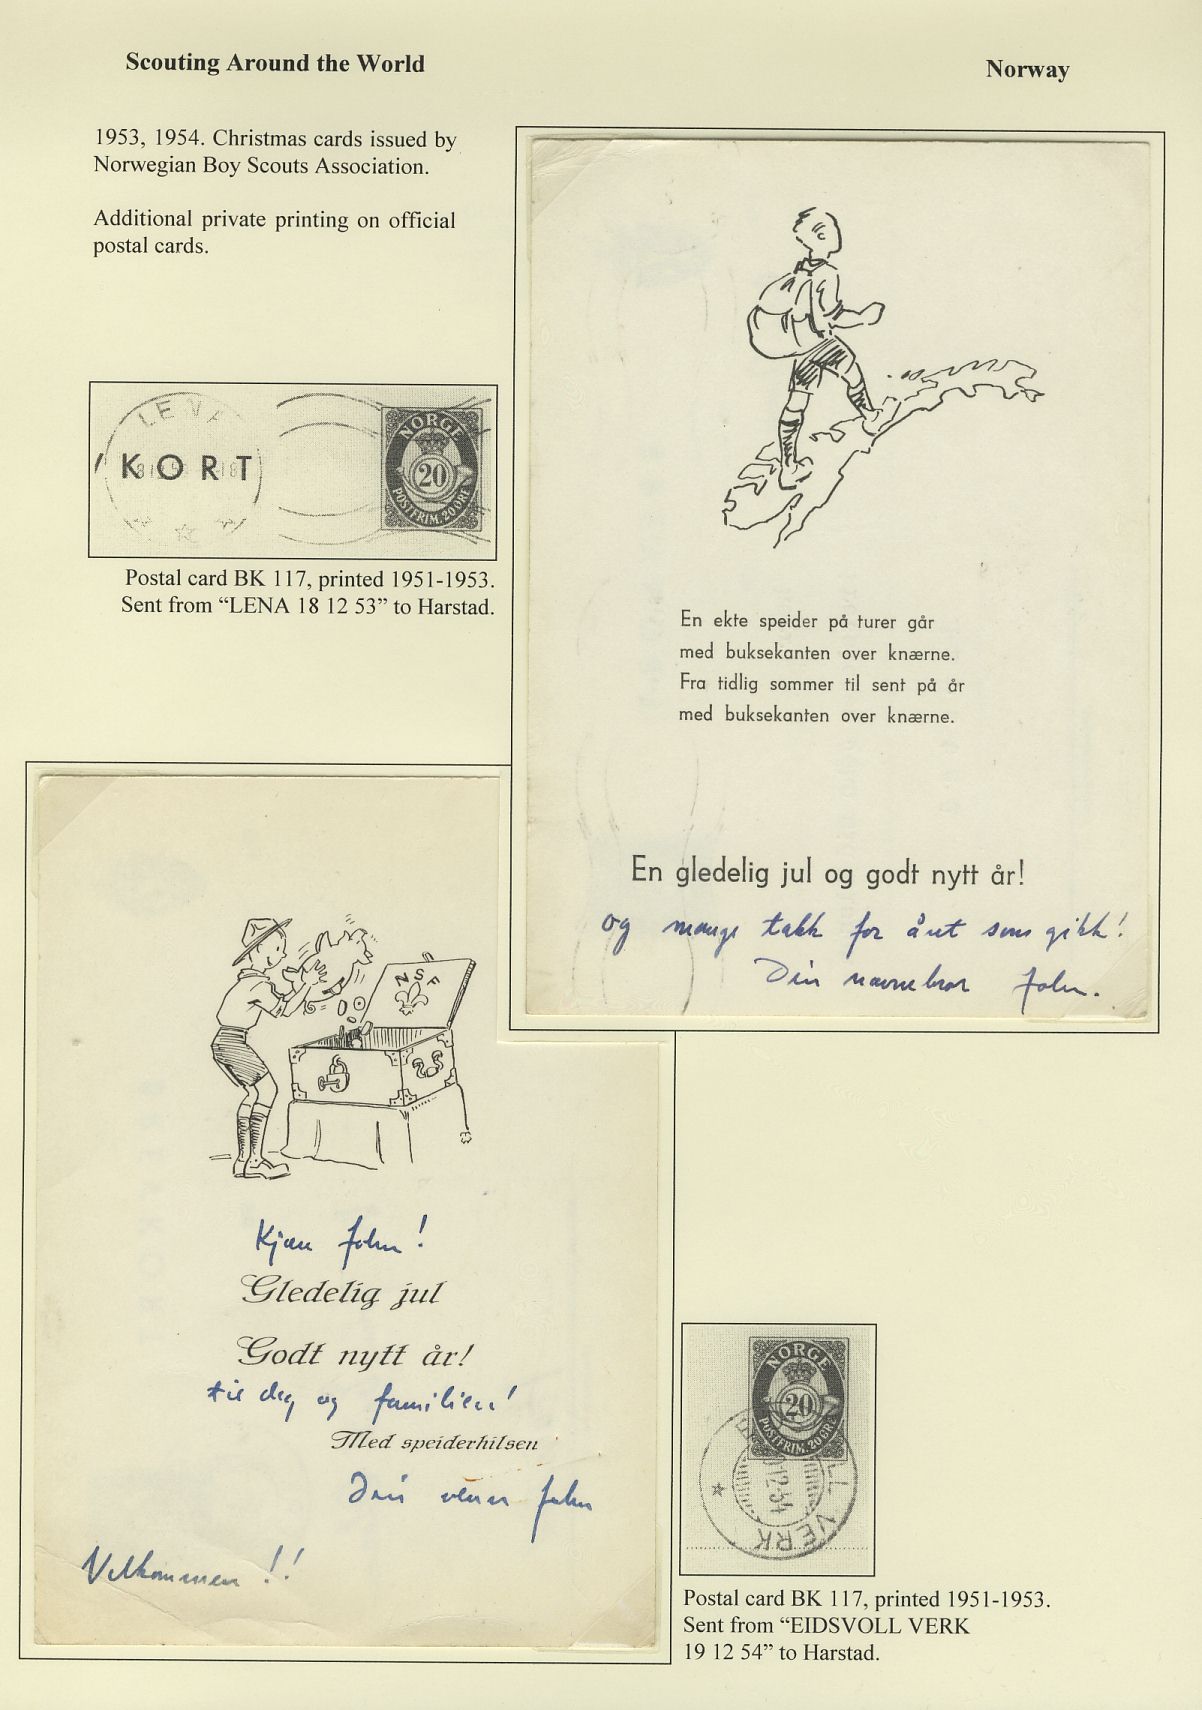 Scouting Around the World
Norway
1953, 1954. Christmas cards issued by
Norwegian Boy Scouts Association.
Additional private printing on official
postal cards.
LENA
KORT
NORGE
20
POSTFRIM. 20 ØRE
Postal card BK 117, printed 1951-1953.
Sent from “LENA 18 12 53” to Harstad.
En ekte speider på turer går
med buksekanten over knærne.
Fra tidlig sommer til sent på år
med buksekanten over knærne.
En gledelig jul og godt nytt år!
og mange takk for året som gikk!
Din navnebror John.
NSF
Kjære John!
Gledelig jul
Godt nytt år!
til deg og familien!
Med speiderhilsen
Din venn John
Velkommen!!
NORGE
20
POSTFRIM. 20 ØRE
12.54
LL VERK
Postal card BK 117, printed 1951-1953.
Sent from “EIDSVOLL VERK
19 12 54” to Harstad.